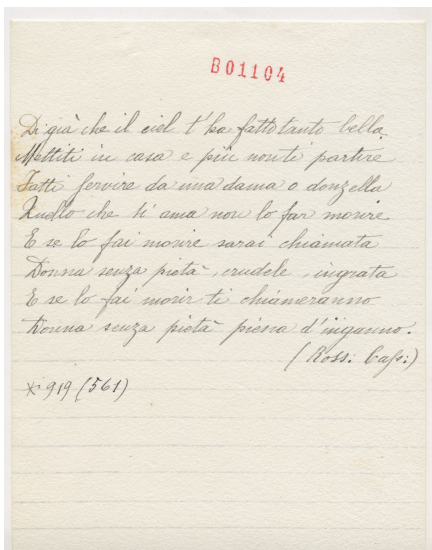 B01104
Di già che il ciel t'ha fatto tanto bella
Mettiti in casa e più non ti partire
Fatti servire da una dama o donzella
Quello che ti ama non lo far morire
E se lo fai morire sarai chiamata
Donna senza pietà, crudele, ingrata
E se lo fai morir ti chiameranno
Donna senza pietà piena d'inganno.
(Rossi Cass:)
* 919 (561)